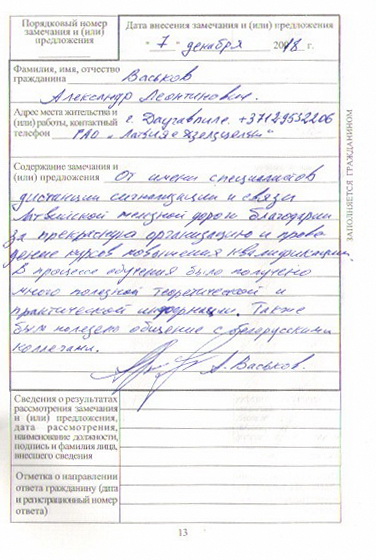 Порядковый номер
замечания и (или)
предложения
Дата внесения замечания и (или) предложения
"7" декабря 2018 г.
Фамилия, имя, отчество
гражданина Васьков
Александр Леонтинович
Адрес места жительства и
(или) работы, контактный
телефон г. Даугавпилс. +37129532206
ГАО "Латвияс Дзелзцельш"
Содержание замечания и
(или) предложения От имени специалистов
дистанции сигнализации и связи
Латвийской железной дороги благодарим
за прекрасную организацию и прове
дение курсов повышения квалификации.
В процессе обучения было получено
много полезной теоретической и
практической информации. Также
было полезно общение с белорусскими
коллегами.
А. Васьков.
Сведения о результатах
рассмотрения замечания
и (или) предложения,
дата рассмотрения,
наименование должности,
подпись и фамилия лица,
внесшего сведения
Отметка о направлении
ответа гражданину (дата
и регистрационный номер
ответа)
13
ЗАПОЛНЯЕТСЯ ГРАЖДАНИНОМ